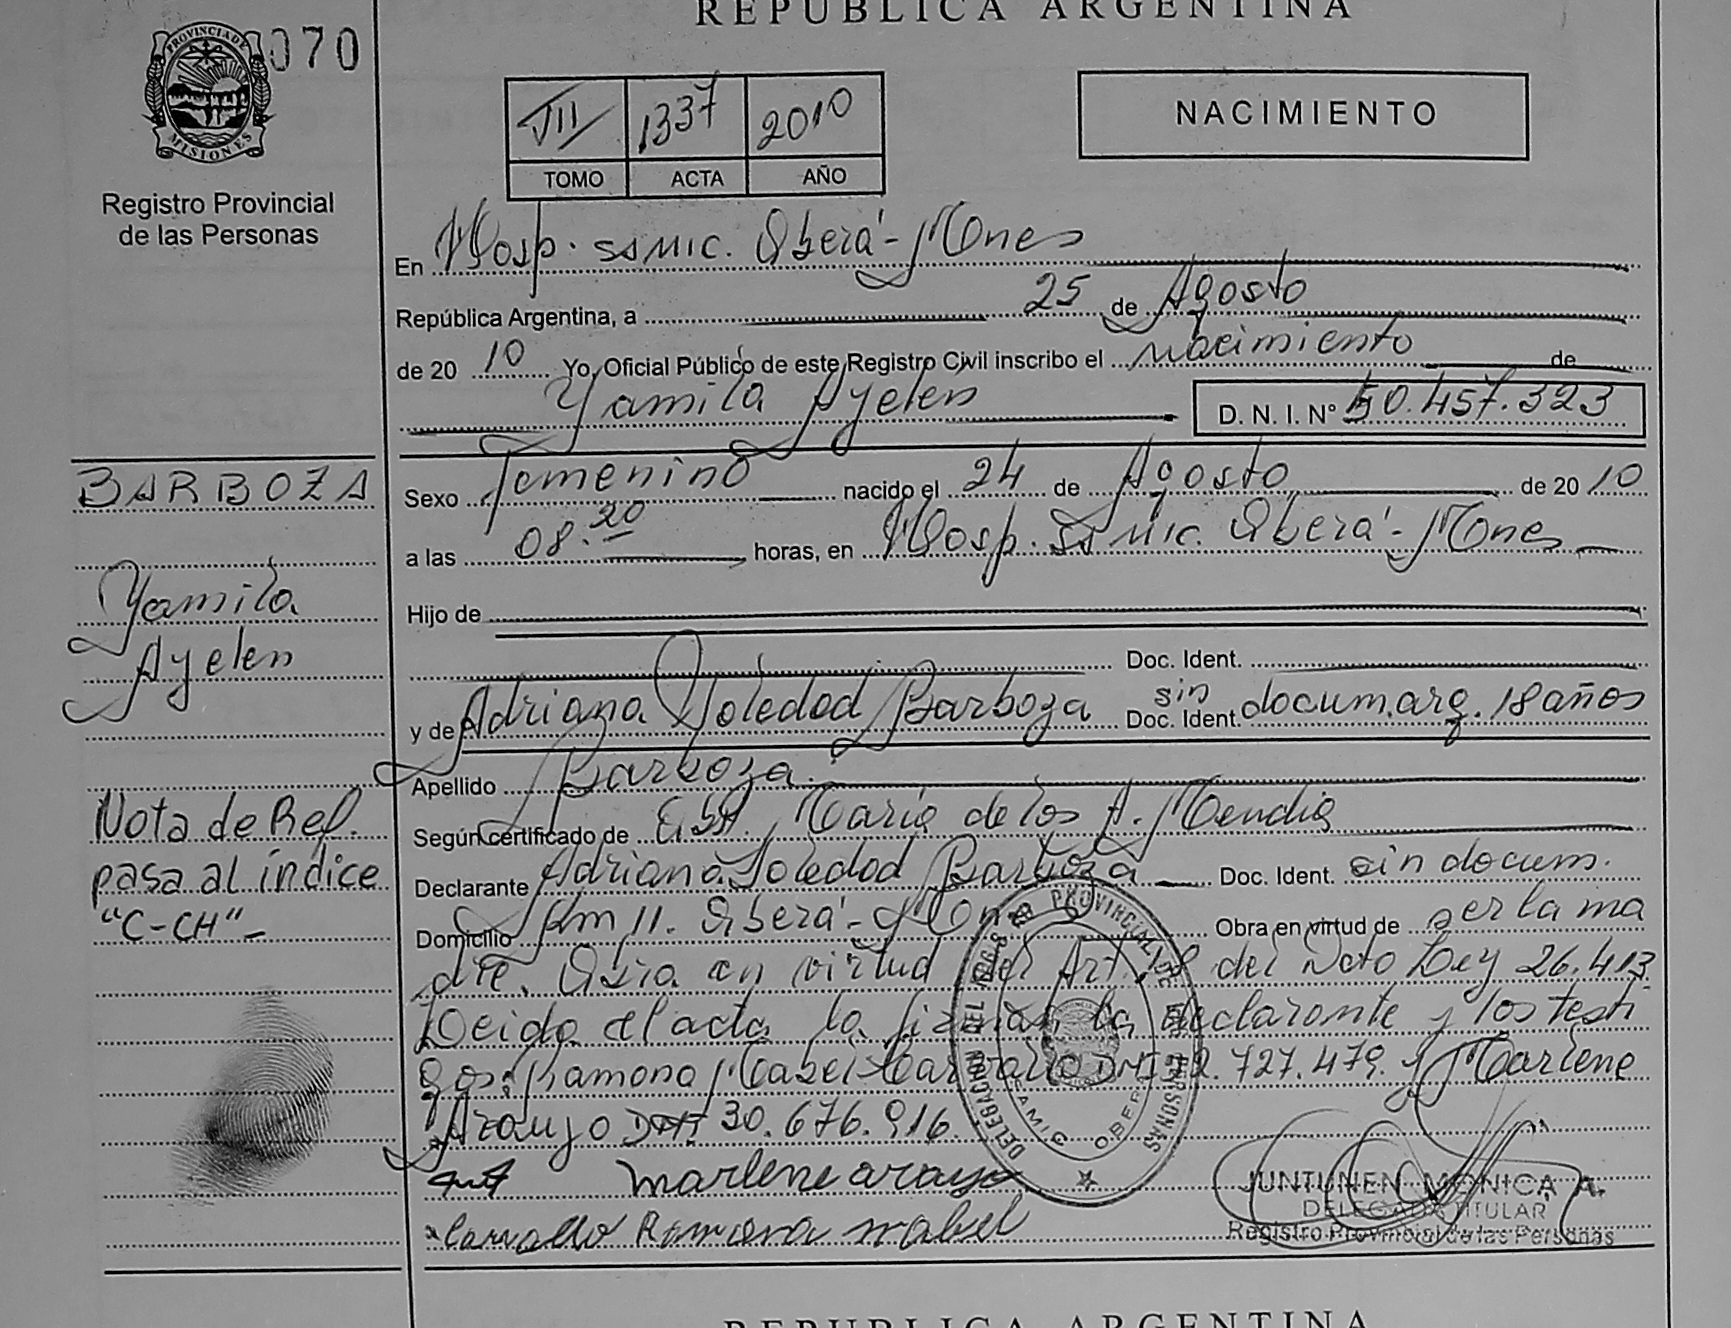 REPUBLICA ARGENTINA
070
PROVINCIA DE MISIONES
Registro Provincial
de las Personas
VII 1337 2010
TOMO ACTA AÑO
NACIMIENTO
En Hosp. SSMIC. Oberá - Mnes
República Argentina, a 25 de Agosto
de 2010 Yo, Oficial Público de este Registro Civil inscribo el nacimiento de
Yamila Ayelen D. N. I. Nº 50.457.323
BARBOZA
Yamila
Ayelen
Nota de Ref.
pasa al índice
"C-CH"-
Sexo Femenino nacido el 24 de Agosto de 2010
a las 08.20 horas, en Hosp. SSMIC. Oberá - Mnes
Hijo de
Doc. Ident.
y de Adriana Soledad Barboza Doc. Ident. sin docum. arg. 18 años
Apellido Barboza.
Según certificado de María de los A. Mendis
Declarante Adriana Soledad Barboza Doc. Ident. sin docum.
Domicilio Km 11. Oberá - Obra en virtud de ser la ma
dre. en virtud del Art. del Dcto Ley 26.413.
Leida el acta la firman la declarante y los testi
gos: Ramona Mabel Carvallo DNI 727.479. y Marlene
Araujo DNI 30.676.916.
marlene arayo
Carvallo Ramona mabel
DELEGACION DEL REG. PROVINCIAL DE LAS PERSONAS
OBERA
JUNTUNEN MONICA A.
DELEGADA TITULAR
Registro Provincial de las Personas
REPUBLICA ARGENTINA